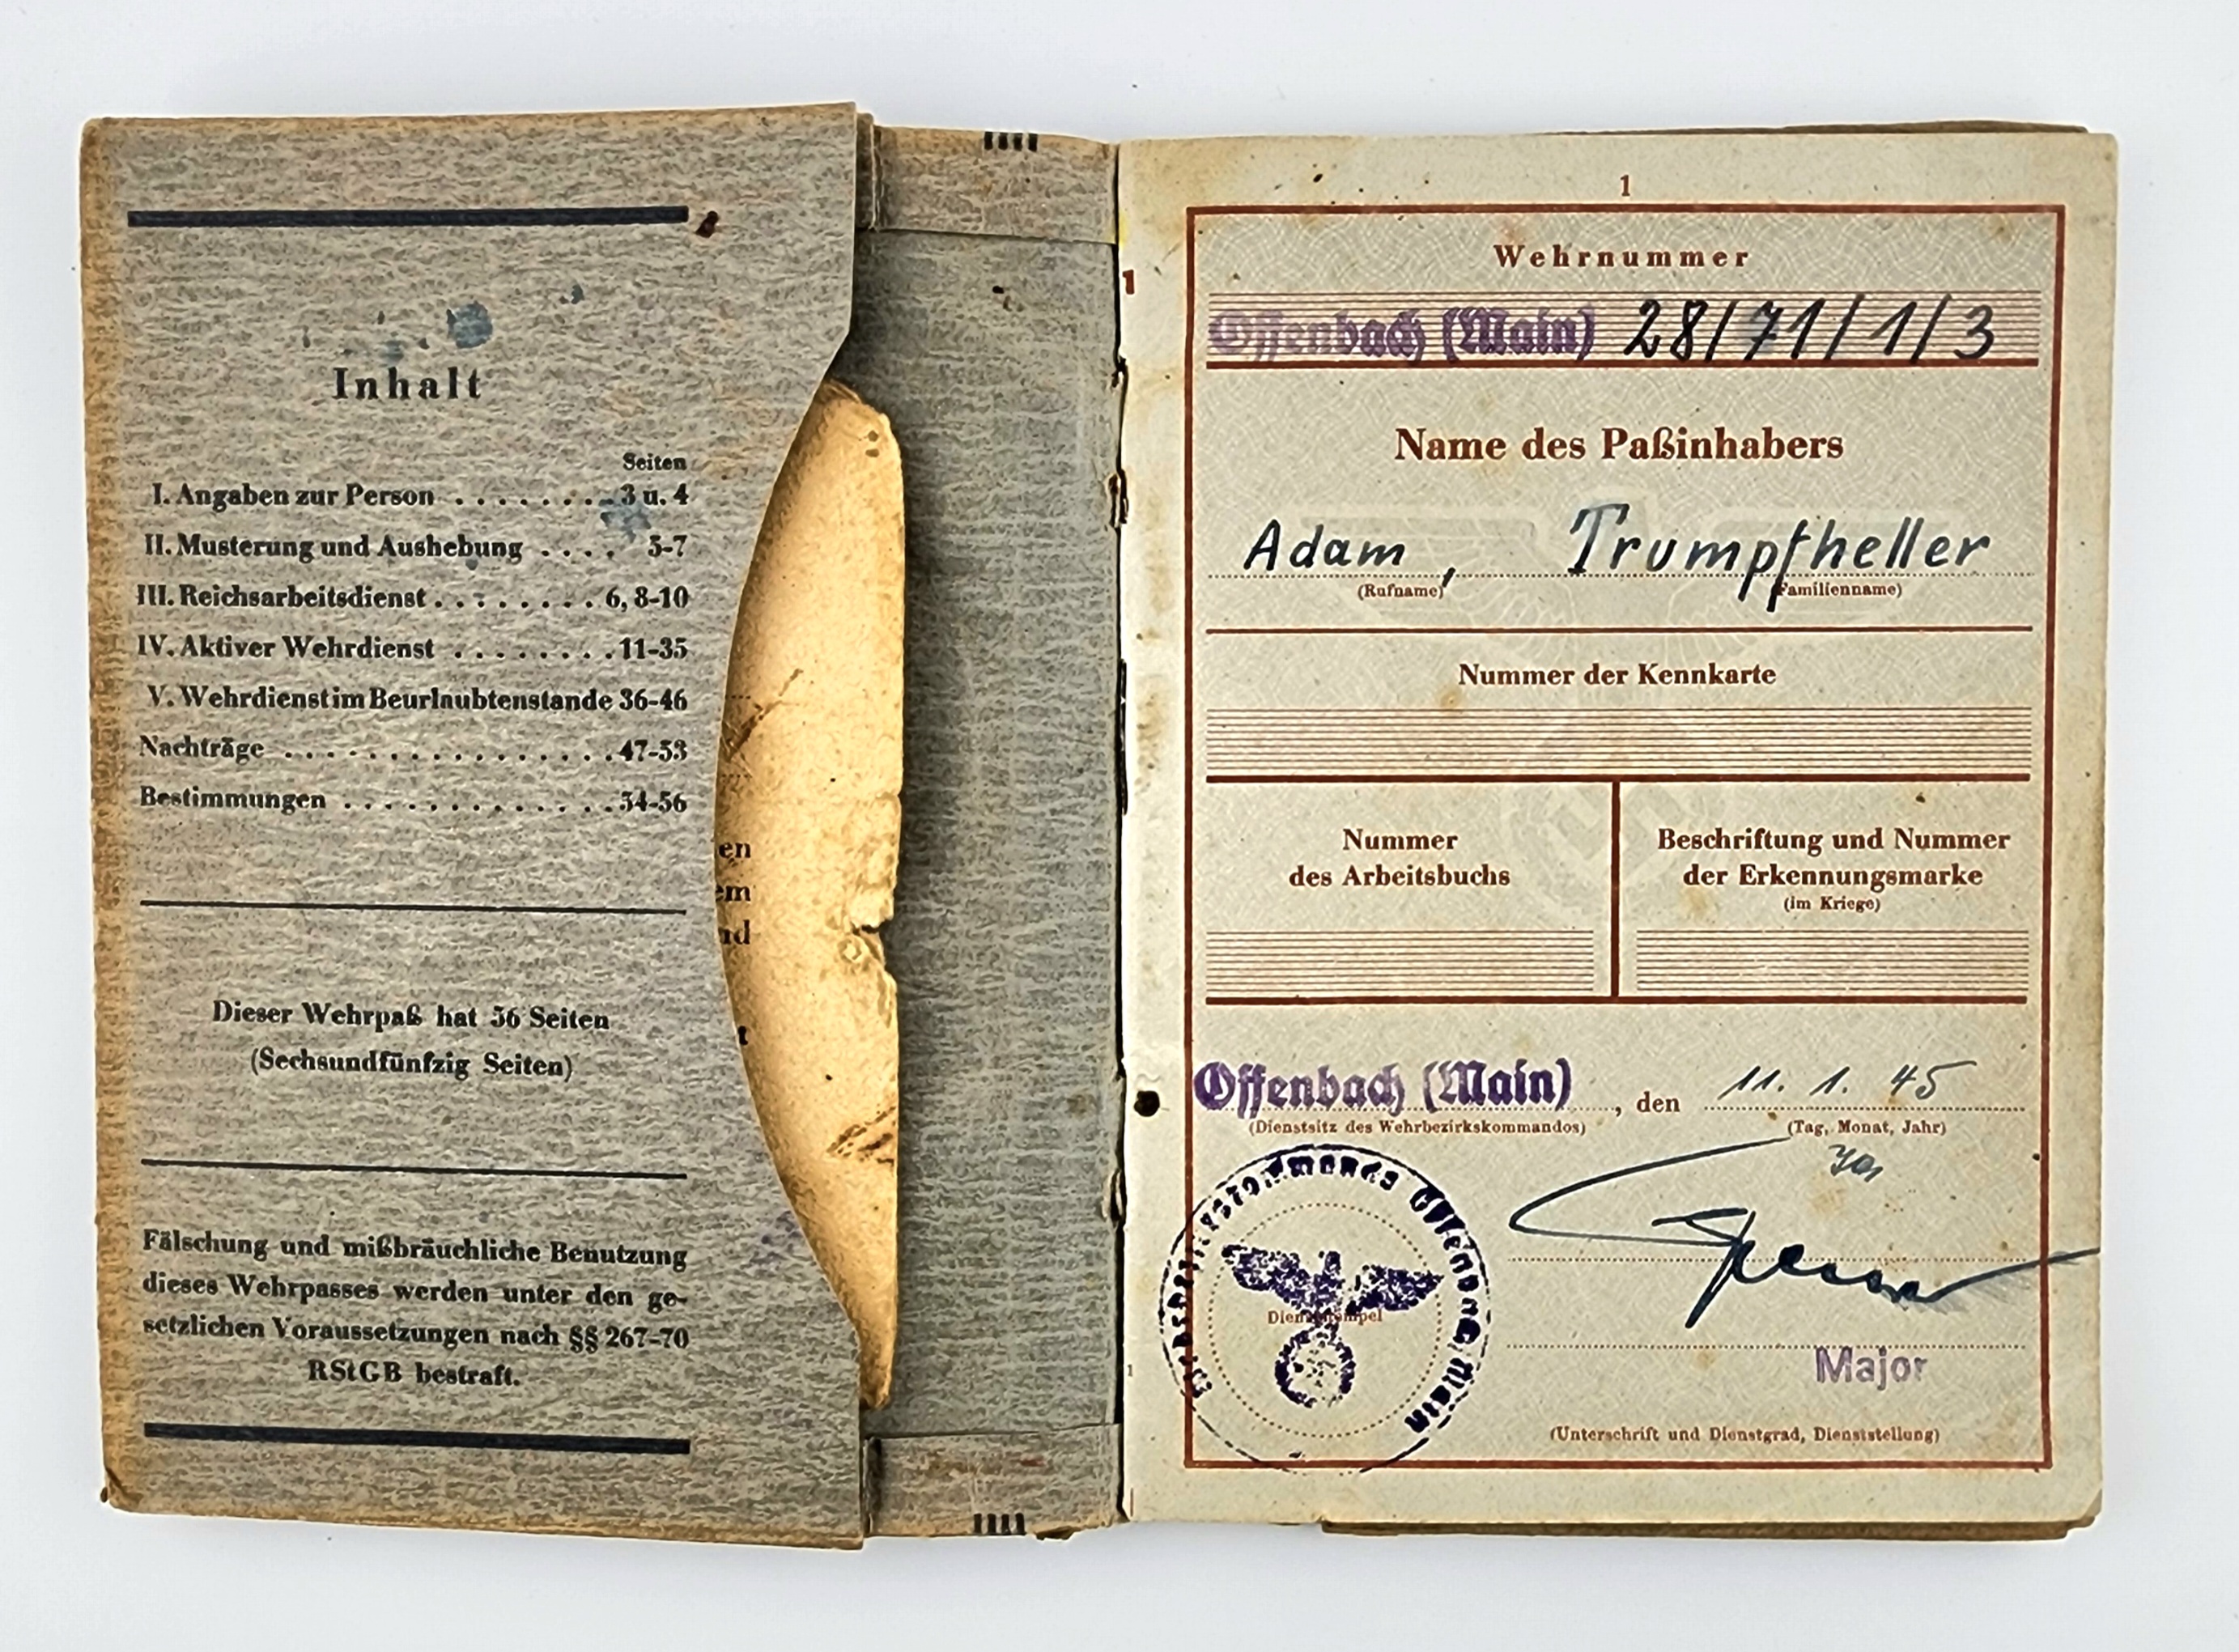 Inhalt
Seiten
I. Angaben zur Person . . . . . . . . 3 u. 4
II. Musterung und Aushebung . . . . 5-7
III. Reichsarbeitsdienst . . . . . . . . 6, 8-10
IV. Aktiver Wehrdienst . . . . . . . . 11-35
V. Wehrdienst im Beurlaubtenstande 36-46
Nachträge . . . . . . . . . . . . . . . 47-53
Bestimmungen . . . . . . . . . . . . 54-56
Dieser Wehrpaß hat 56 Seiten
(Sechsundfünfzig Seiten)
Fälschung und mißbräuchliche Benutzung
dieses Wehrpasses werden unter den ge-
setzlichen Voraussetzungen nach §§ 267-70
RStGB bestraft.
en
em
nd
t
1
1
Wehrnummer
Offenbach (Main) 28/71/1/3
Name des Paßinhabers
Adam, Trumpfheller
(Rufname) (Familienname)
Nummer der Kennkarte
Nummer
des Arbeitsbuchs
Beschriftung und Nummer
der Erkennungsmarke
(im Kriege)
Offenbach (Main), den 11. 1. 45
(Dienstsitz des Wehrbezirkskommandos) (Tag, Monat, Jahr)
Dienststempel
Offenbach Main
Major
(Unterschrift und Dienstgrad, Dienststellung)
1